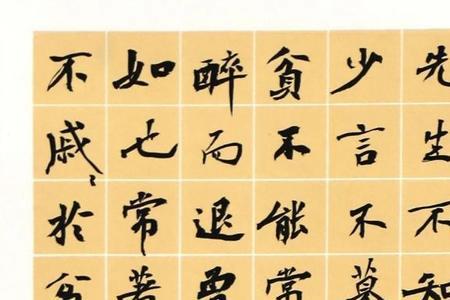 先生不知
少言不慕
貧不能常
醉而退曾
如也常著
不戚〻於貧